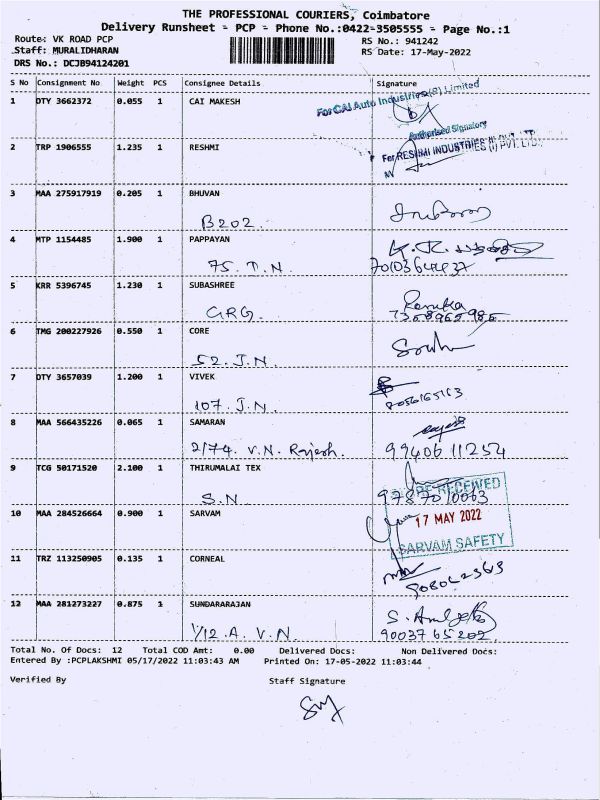 THE PROFESSIONAL COURIERS, Coimbatore
Delivery Runsheet - PCP - Phone No.:0422-3505555 - Page No.:1
Route: VK ROAD PCP
RS No.: 941242
Staff: MURALIDHARAN
RS Date: 17-May-2022
DRS No.: DCJB94124201
S No Consignment No Weight PCS Consignee Details Signature
1 DTY 3662372 0.055 1 CAI MAKESH
For CAI Auto Industries (P) Limited
Authorised Signatory
2 TRP 1906555 1.235 1 RESHMI
For RESHMI INDUSTRIES (I) PVT. LTD.,
3 MAA 275917919 0.205 1 BHUVAN
B202.
4 MTP 1154485 1.900 1 PAPPAYAN
75. T.N.
5 KRR 5396745 1.230 1 SUBASHREE
GRG. Renuka
7358965985
6 TMG 200227926 0.550 1 CORE
52. J.N.
7 DTY 3657039 1.200 1 VIVEK
107. J.N. 8056165163
8 MAA 566435226 0.065 1 SAMARAN
2/74. V.N. Rajesh. 99406 11254
9 TCG 50171520 2.100 1 THIRUMALAI TEX
S.N. 9787010063
RECEIVED
10 MAA 284526664 0.900 1 SARVAM
17 MAY 2022
SARVAM SAFETY
11 TRZ 113250905 0.135 1 CORNEAL
12 MAA 281273227 0.875 1 SUNDARARAJAN
1/12.A. V.N. 90037 65202
Total No. Of Docs: 12 Total COD Amt: 0.00 Delivered Docs: Non Delivered Docs:
Entered By :PCPLAKSHMI 05/17/2022 11:03:43 AM Printed On: 17-05-2022 11:03:44
Verified By Staff Signature